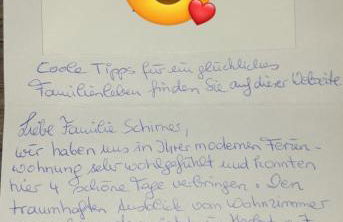 Coole Tipps für ein glückliches
Familienleben finden Sie auf dieser Webseite
Liebe Familie Schirmer,
wir haben uns in Ihrer modernen Ferien-
wohnung sehr wohlgefühlt und konnten
hier 4 schöne Tage verbringen. Den
traumhaften Ausblick vom Wohnzimmer